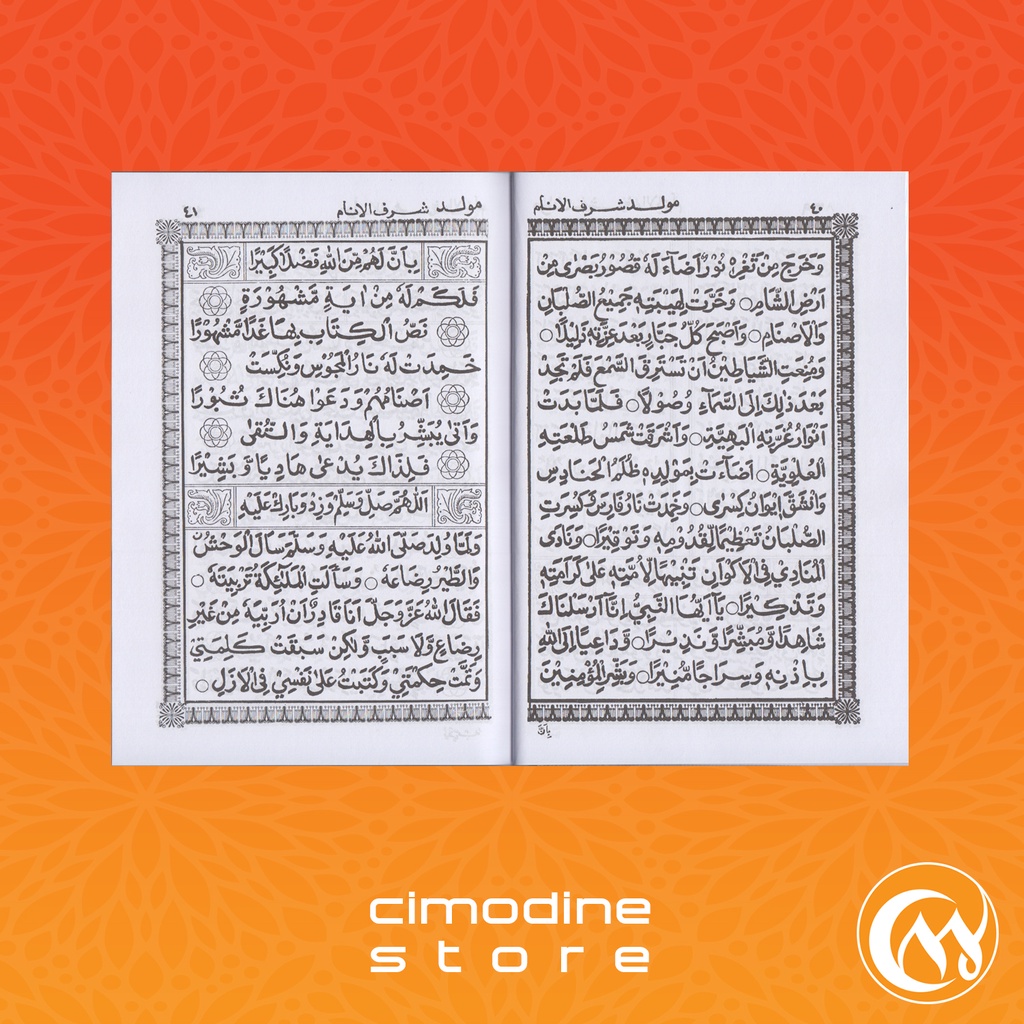 مولد شرف الانام
٤٠
وَخَرَجَ مِنْ ثَغْرِهٖ نُوْرٌ اَضَآءَ لَهٗ قُصُوْرُ بُصْرٰى مِنْ
اَرْضِ الشَّامِ ○ وَخَرَّتْ لِهَيْبَتِهٖ جَمِيْعُ الصُّلْبَانِ
وَالْاَصْنَامِ ○ وَاَصْبَحَ كُلُّ جَبَّارٍ بَعْدَ عِزَّتِهٖ ذَلِيْلًا ○
وَمُنِعَتِ الشَّيَاطِيْنُ اَنْ تَسْتَرِقَ السَّمْعَ فَلَمْ تَجِدْ
بَعْدَ ذٰلِكَ اِلَى السَّمَآءِ وُصُوْلًا ○ فَلَمَّا بَدَتْ
اَنْوَارُ غُرَّتِهِ الْبَهِيَّةِ ○ وَاَشْرَقَتْ شَمْسُ طَلْعَتِهِ
الْعُلْوِيَّةِ ○ اَضَآءَتْ بِمَوْلِدِهٖ ظُلَمُ الْحَنَادِسِ
وَانْشَقَّ اِيْوَانُ كِسْرٰى ○ وَخَمِدَتْ نَارُ فَارِسَ وَكُسِرَتِ
الصُّلْبَانُ تَعْظِيْمًا لِقُدُوْمِهٖ وَتَوْقِيْرًا ○ وَنَادَى
الْمُنَادِيْ فِى الْاَكْوَانِ تَنْبِيْهًا لِاُمَّتِهٖ عَلٰى كَرَامَتِهٖ
وَتَذْكِيْرًا ○ يَآ اَيُّهَا النَّبِيُّ اِنَّآ اَرْسَلْنَاكَ
شَاهِدًا وَّمُبَشِّرًا وَّنَذِيْرًا ○ وَّدَاعِيًا اِلَى اللّٰهِ
بِاِذْنِهٖ وَسِرَاجًا مُّنِيْرًا ○ وَبَشِّرِ الْمُؤْمِنِيْنَ
بِاَنَّ
مولد شرف الانام
٤١
بِاَنَّ لَهُمْ مِنَ اللّٰهِ فَضْلًا كَبِيْرًا
فَلَكَمْ لَهٗ مِنْ اٰيَةٍ مَّشْهُوْرَةٍ
نَصَّ الْكِتَابِ بِهَا غَدًا مَّشْهُوْرًا
خَمِدَتْ لَهٗ نَارُ الْمَجُوْسِ وَنُكِّسَتْ
اَصْنَامُهُمْ وَدَعَوْا هُنَاكَ ثُبُوْرًا
وَاَتٰى يُبَشِّرُ بِالْهِدَايَةِ وَالتُّقٰى
فَلِذَاكَ يُدْعٰى هَادِيًا وَّبَشِيْرًا
اَللّٰهُمَّ صَلِّ وَسَلِّمْ وَزِدْ وَبَارِكْ عَلَيْهِ
وَلَمَّا وُلِدَ صَلَّى اللّٰهُ عَلَيْهِ وَسَلَّمَ سَاَلَ الْوَحْشُ
وَالطَّيْرُ رِضَاعَهٗ ○ وَسَاَلَتِ الْمَلٰٓئِكَةُ تَرْبِيَتَهٗ ○
فَقَالَ اللّٰهُ عَزَّ وَجَلَّ اَنَا قَادِرٌ اَنْ اُرَبِّيَهٗ مِنْ غَيْرِ
رِضَاعٍ وَّلَا سَبَبٍ وَّلٰكِنْ سَبَقَتْ كَلِمَتِيْ
وَتَمَّتْ حِكْمَتِيْ وَكَتَبْتُ عَلٰى نَفْسِيْ فِى الْاَزَلِ ○
cimodine
store